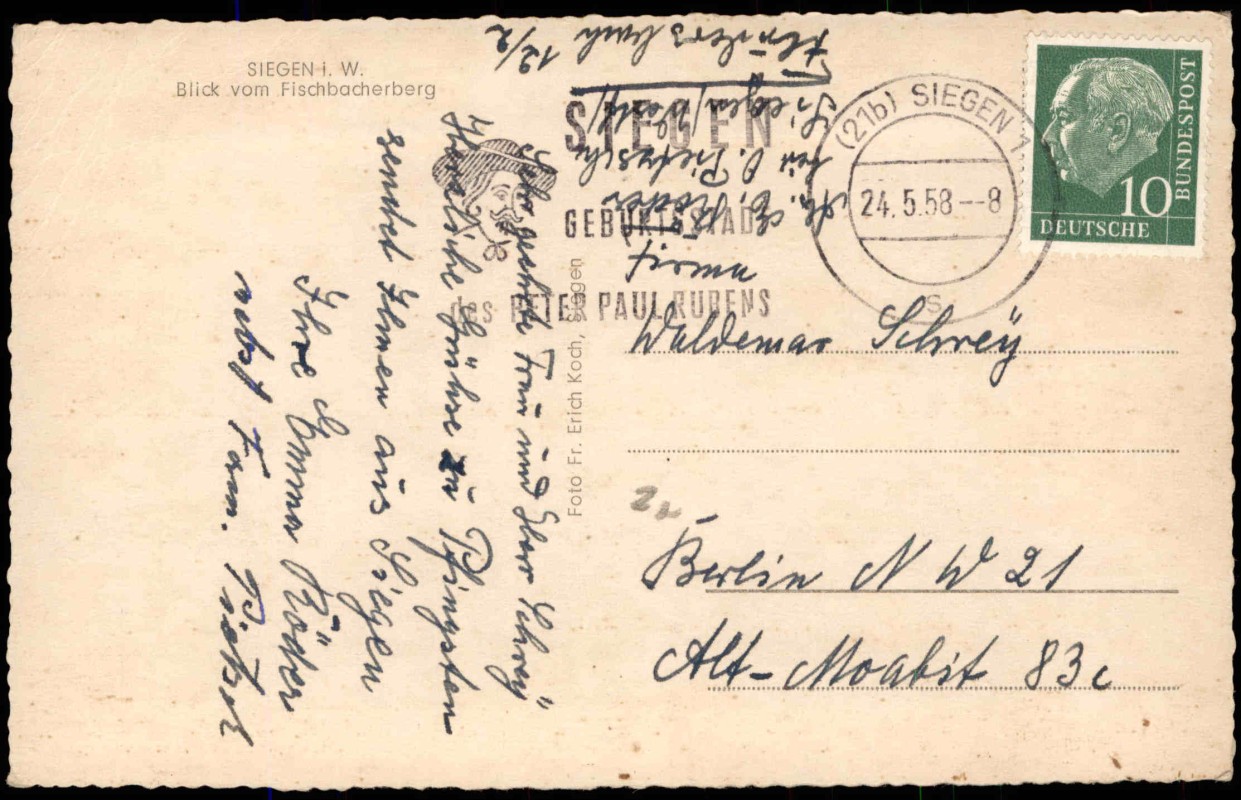 SIEGEN i. W.
Blick vom Fischbacherberg
Sehr geehrte Frau und Herr Schrey
Herzliche Grühse zu Pfingsten
sendet Ihnen aus Siegen
Ihre Emma Röder
nebst Fam.
Foto Fr. Erich Koch, Siegen
SIEGEN
GEBURTSSTADT
des PETER PAUL RUBENS
(21b) SIEGEN 1
24.5.58--8
s
10
DEUTSCHE
BUNDESPOST
E. Röder
Siegen/Westf/
12/2
Firma
Waldemar Schreÿ
Berlin N W 21
Alt-Moabit 83c